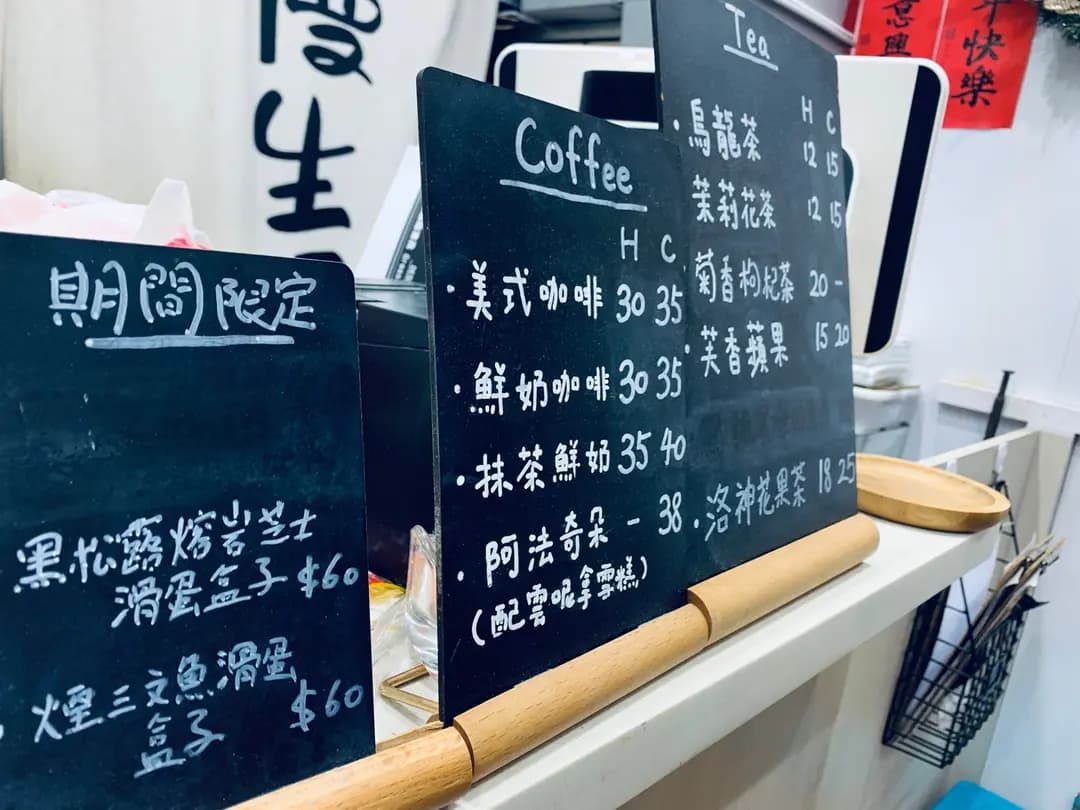 期間限定
黑松露熔岩芝士
滑蛋盒子 $60
煙三文魚滑蛋
盒子 $60
慢生
Coffee
H C
· 美式咖啡 30 35
· 鮮奶咖啡 30 35
· 抹茶鮮奶 35 40
· 阿法奇朵 - 38
(配雲呢拿雪糕)
Tea
H C
· 烏龍茶 12 15
茉莉花茶 12 15
· 菊香枸杞茶 20 -
· 芙香蘋果 15 20
· 洛神花果茶 18 25
意興
年快樂